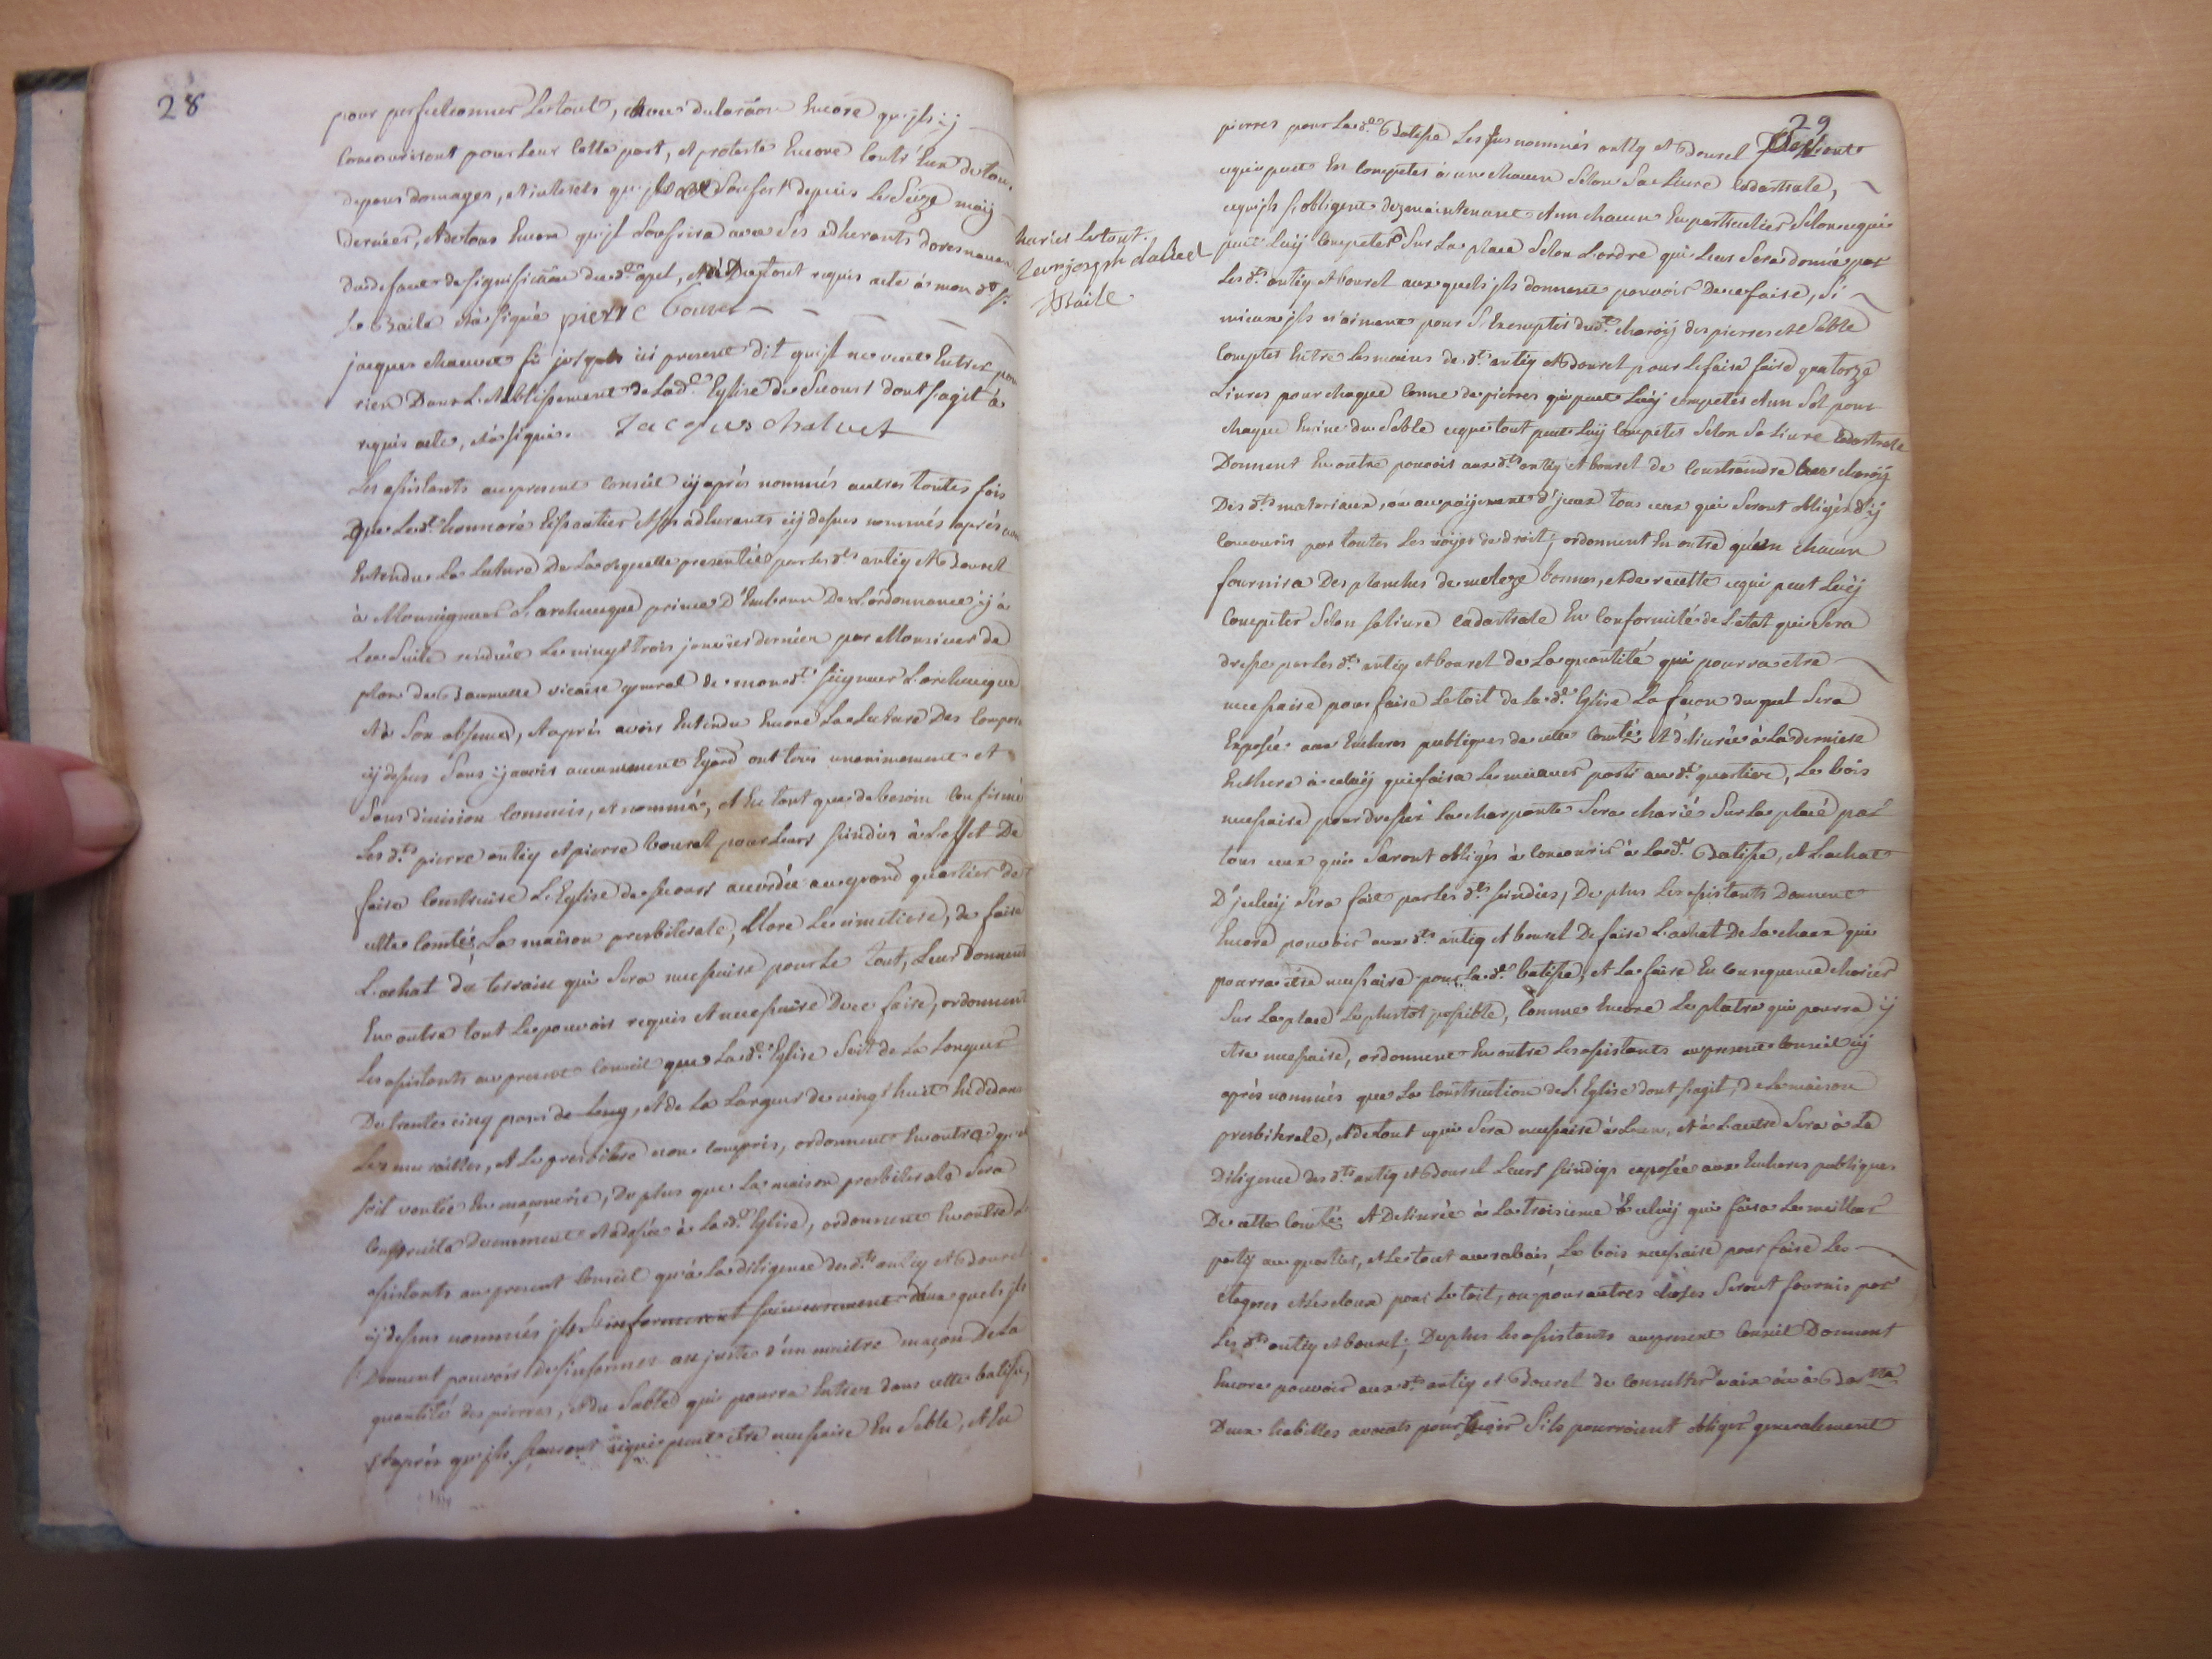 28
pour perfectionner Le tout, Encore qu'jls ij
Concouriront pour Leur Cotte part, et proteste Encore Contr'Eux de tous
depans domages, et interets qu'jls Soufert depuis Le Seize maij
dernier, et de tous Encore qu'jl Soufrira avec Ses adherants doresnavant
du defaut de signification du d.t apel, et Du tout requis acte à mon d.t s.r
Le Baile et à signé pierre Bouret
jacques chauvet fu ici present dit qu'jl ne veut Entrer pour
rien Dans L'etablissement de Lad.e Eglise de Secours dont s'agit à
requis acte, et à signé. Jacques Chalvet
Les assistants au present Conseil cy après nommés autres toutes fois
que Led.t honnoré et ses adherants cij dessus nommés après avoir
Entendu La Lecture De La Requette presentée par les d.ts antiq et Bouret
à Monseigneur L'archeveque prince D'Embrun De L'ordonnance ij à
La Suite rendüe Le vingt trois janvier dernier par Monsieur de
vicaire general de mon d.t seigneur L'archeveque
et à Son absence, et après avoir Entendu Encore La Lecture Des
cij dessus Sans ij avoir aucunement Egard ont tous unanimement et
Sans division Commis, et nommé, et En tant que de besoin Confirmé
Les d.ts pierre antiq et pierre bouret pour Leurs sindics à L'effet De
faire Construire L'Eglise de secours accordée au grand quartier de
cette Com.té La maison presbiterale, Clore Le cimetiere, de faire
L'achat du terrain qui Sera necessaire pour Le Tout, Leur donnent
En outre tout Le pouvoir requis et necessaire De ce faire, ordonnent
Les assistants au present Conseil que Lad.e Eglise Soit de La Longeur
De trente cinq pans de Long, et de La Largeur de vingt huit En dedans
Les murailles, et Le presbitere non compris, ordonnent En outre qu'elle
soit voutée En maçonnerie, De plus que La maison presbiterale Sera
Construite Deuement et adossée à Lad.e Eglise, ordonnent En outre Les
assistants au present Conseil qu'à La diligence des d.ts antiq et Bouret
cij dessus nommés jls S'informeront aux quels jls
Donnent pouvoir de s'informer au juste d'un maitre maçon De La
quantité des pierres, et du Sable qui pourra Entrer dans cette batisse,
et après qu'jls sçauront ce qui peut etre necessaire En Sable, et En
29
pierres pour Lad.e Batisse Les sus nommés antiq et Bouret
ce qui peut En Competer à un chacun Selon Sa Livre Cadastrale,
ce qu'jls s'obligent dez maintenant et un chacun En particulier Selon ce qui
peut Luij Competer Sur La place Selon L'ordre qui Leur Sera donné par
charier Le tout.
Jean joseph
Baile
Les d.ts antiq et bouret aux quels jls donnent pouvoir De ce faire, Si
mieux jls n'aiment pour S'Exempter du d.t charoij des pierres et Sable
Compter Entre Les mains des d.ts antiq et Bouret pour Le faire faire quatorze
Livres pour chaque Canne de pierres qui peut Luij Competer et un Sol pour
chaque Emine du Sable ce que tout peut Luij Competer Selon Sa Livre Cadastrale
Donnent En outre pouvoir aux d.ts antiq et bouret de Contraindre au charoij
Des d.ts materiaux, ou au païjement d'jceux tous ceux qui Seront obligés d'ij
Concourir par toutes Les voijes de droit, ordonnent En outre qu'un chacun
fournira Des planches de meleze bonnes, et de recette ce qui peut Luij
Competer Selon sa Livre Cadastrale En Conformité de L'etat qui Sera
dressé par Les d.ts antiq et bouret de La quantité qui pourra etre
necessaire pour faire Le toit de La d.e Eglise La façon du quel Sera
Exposée aux Encheres publiques de cette Com.té Et délivrée à La derniere
Enchere à celuij qui faira Le meilleur parti au d.t quartier, Le bois
necessaire pour dresser La charpente Sera charié Sur La place par
tous ceux qui Seront obligés à Concourir à Lad.e Batisse, et L'achat
D'jceluij Sera fait par Les d.ts sindics, De plus Les assistants Donnent
Encore pouvoir aux d.ts antiq et bouret De faire L'achat De La chaux qui
pourra être necessaire pour Lad.e batisse, et La faire En Consequence charier
Sur La place Le plustot possible, Comme Encore Le platre qui pourra ij
etre necessaire, ordonnent En outre Les assistants au present Conseil cij
après nommés que La Construction de L'Eglise dont s'agit, De La maison
presbiterale, et de tout ce qui Sera necessaire à L'une, et à L'autre Sera à La
Diligence des d.ts antiq et Bouret Leurs sindics exposée aux Encheres publiques
De cette Com.té et Delivrée à La troisieme à celuij qui faira Le meilleur
partij au quartier, et Le tout au rabais, Le bois necessaire pour faire Les
etageres et Les cloux pour Le toit, ou pour autres choses Seront fournis par
Les d.ts antiq et bouret; De plus Les assistants au present Conseil Donnent
Encore pouvoir aux d.ts antiq et Bouret de Consulter
Deux habilles avocats pour S'ils pourroient obliger generalement